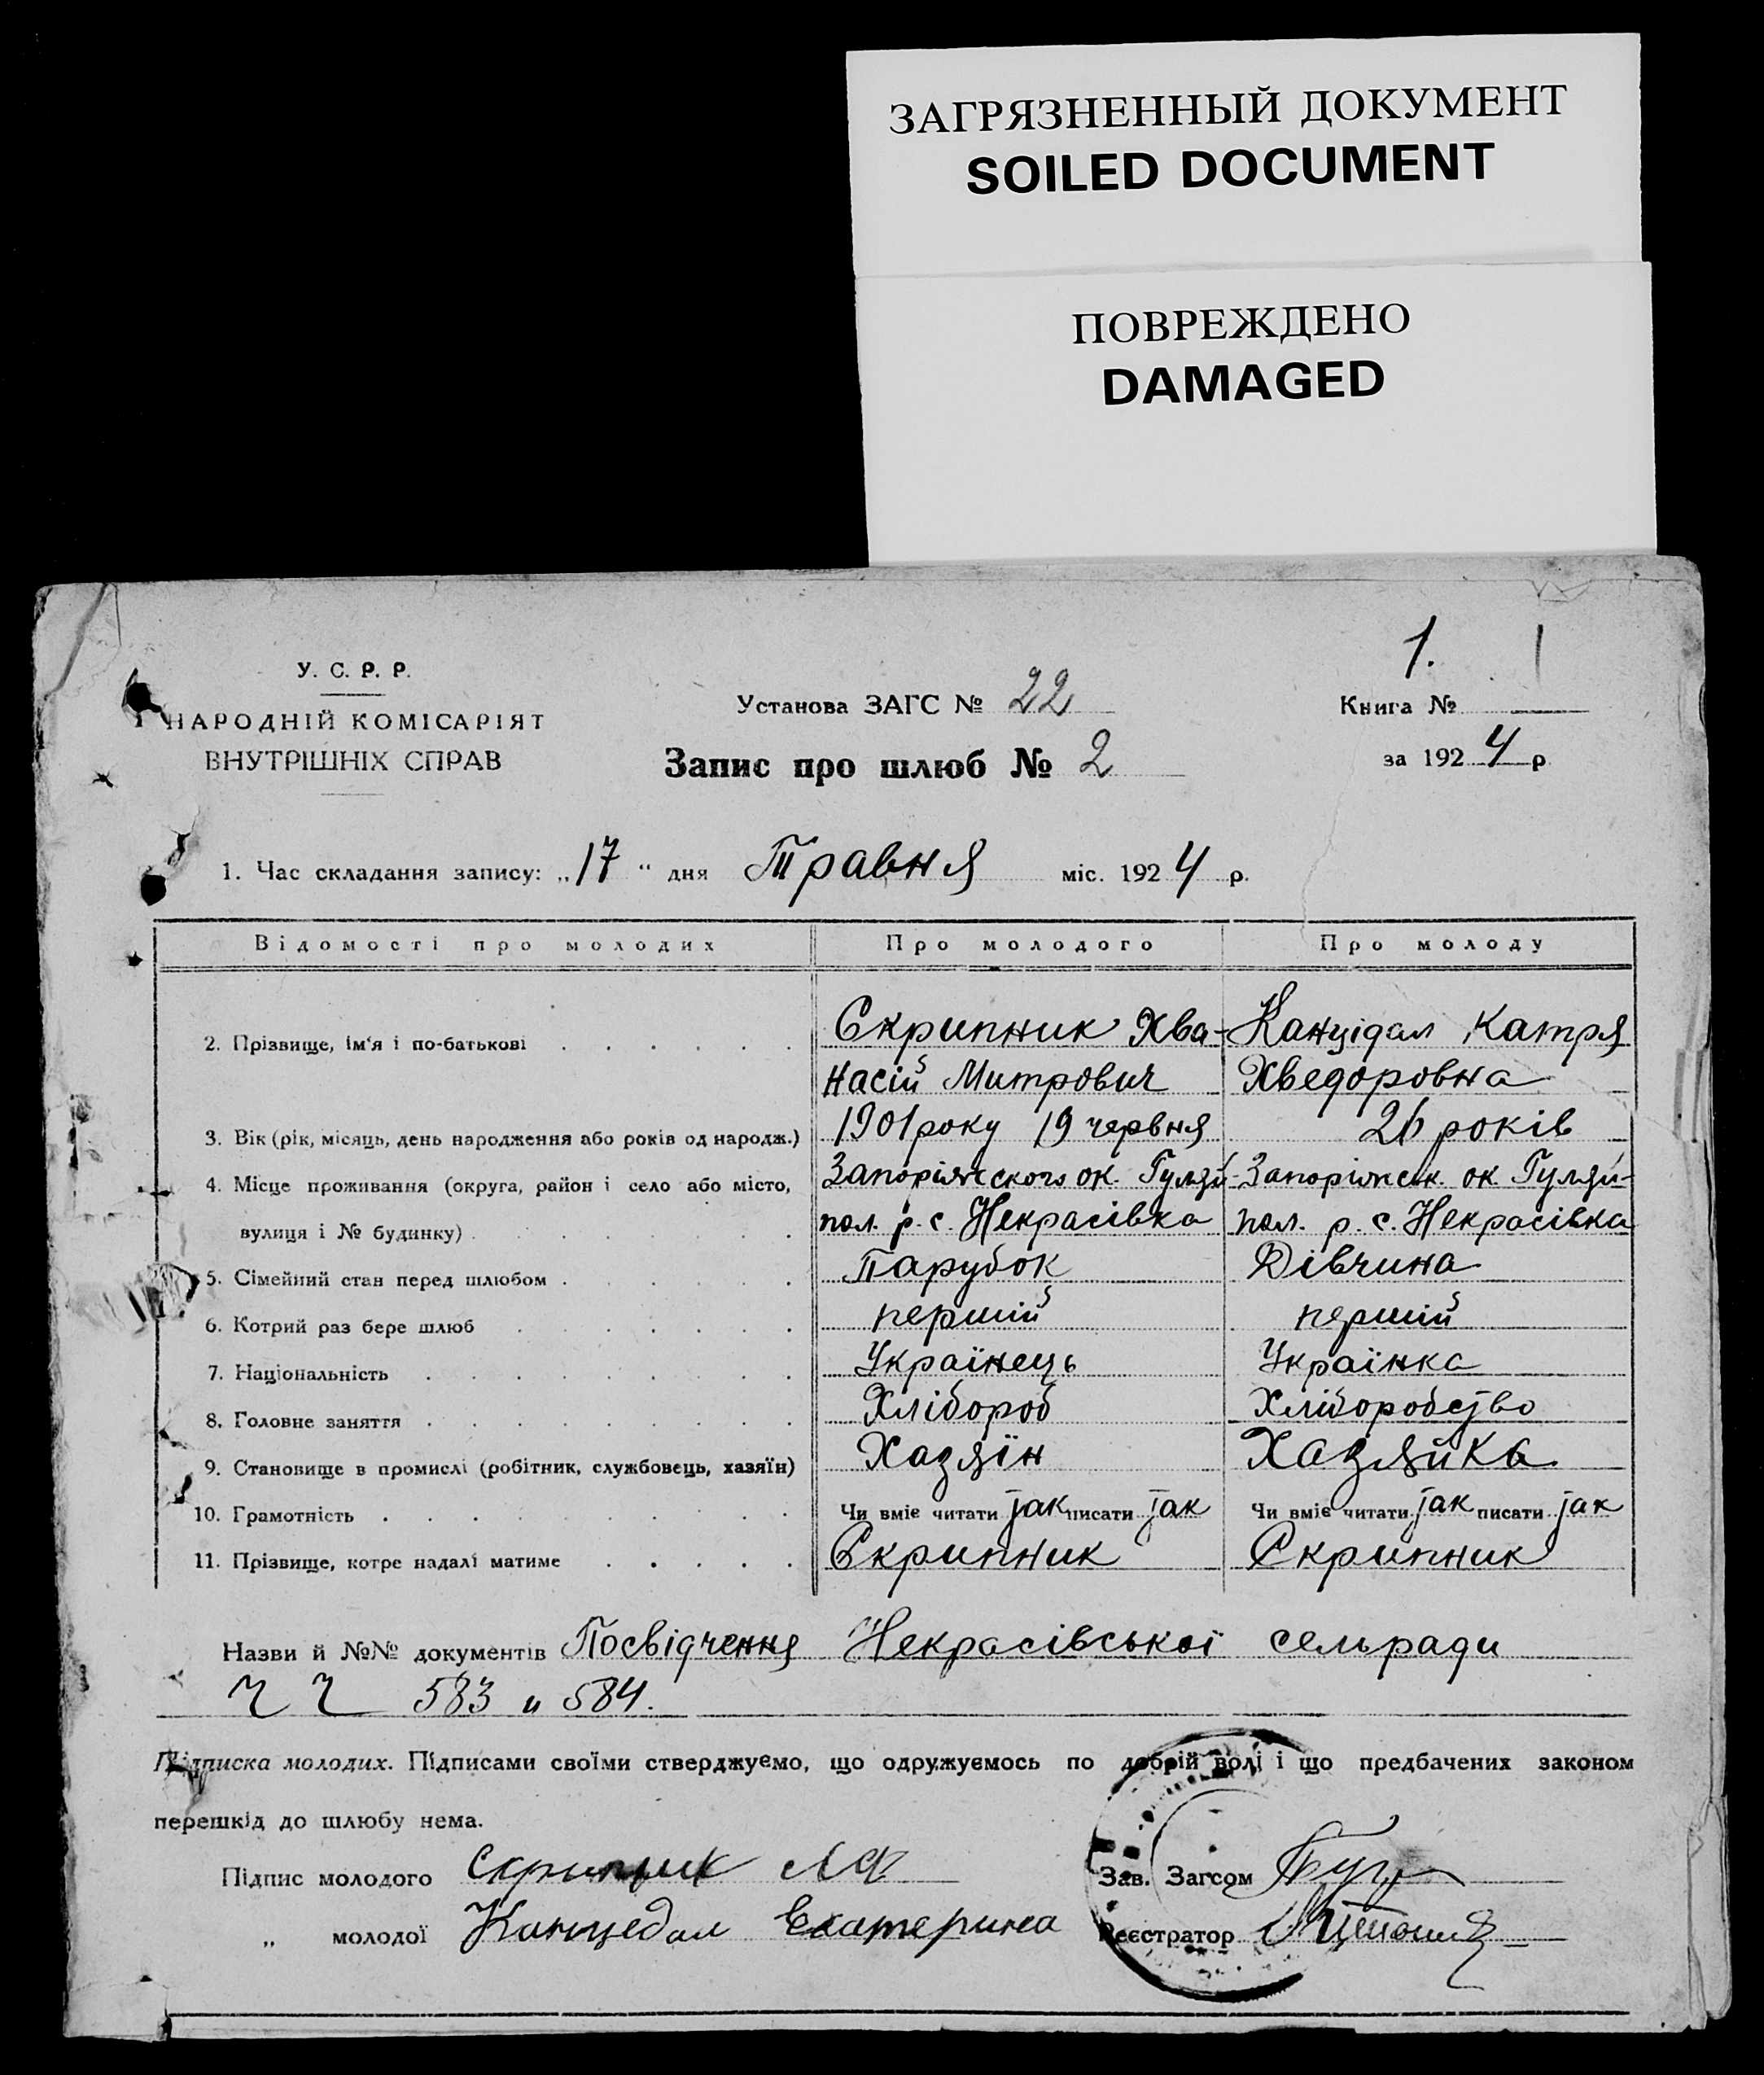 ЗАГРЯЗНЕННЫЙ ДОКУМЕНТ
SOILED DOCUMENT
ПОВРЕЖДЕНО
DAMAGED
1. 1
У. С. Р. Р.
НАРОДНІЙ КОМІСАРІЯТ
ВНУТРІШНІХ СПРАВ
Установа ЗАГС № 22
Книга №
Запис про шлюб № 2
за 1924 р
1. Час складання запису: „17“ дня Травня міс. 1924 р.
Відомості про молодих Про молодого Про молоду
2. Прізвище, ім'я і по-батькові Скрипник Хва- Канцідал Катря
насій Митрович Хведоровна
3. Вік (рік, місяць, день народження або років од народж.) 1901 року 19 червня 26 років
4. Місце проживання (округа, район і село або місто, Запоріжского ок. Гуляй- Запоріжск. ок. Гуляй-
вулиця і № будинку) пол. р. с. Некрасівка пол. р. с. Некрасівка
5. Сімейний стан перед шлюбом Парубок Дівчина
6. Котрий раз бере шлюб першій першій
7. Національність Українець Українка
8. Головне заняття Хлібороб Хліборобство
9. Становище в промислі (робітник, службовець, хазяїн) Хазяїн Хазяйка
10. Грамотність Чи вміє читати јак писати јак Чи вміє читати јак писати јак
11. Прізвище, котре надалі матиме Скрипник Скрипник
Назви й №№ документів Посвідчення Некрасівської сельради
Ч Ч 583 и 584.
Підписка молодих. Підписами своїми стверджуємо, що одружуємось по добрій волі і що предбачених законом
перешкід до шлюбу нема.
Підпис молодого Скрипник
Зав. Загсом
„ молодої Канцедал Екатерина
Реєстратор